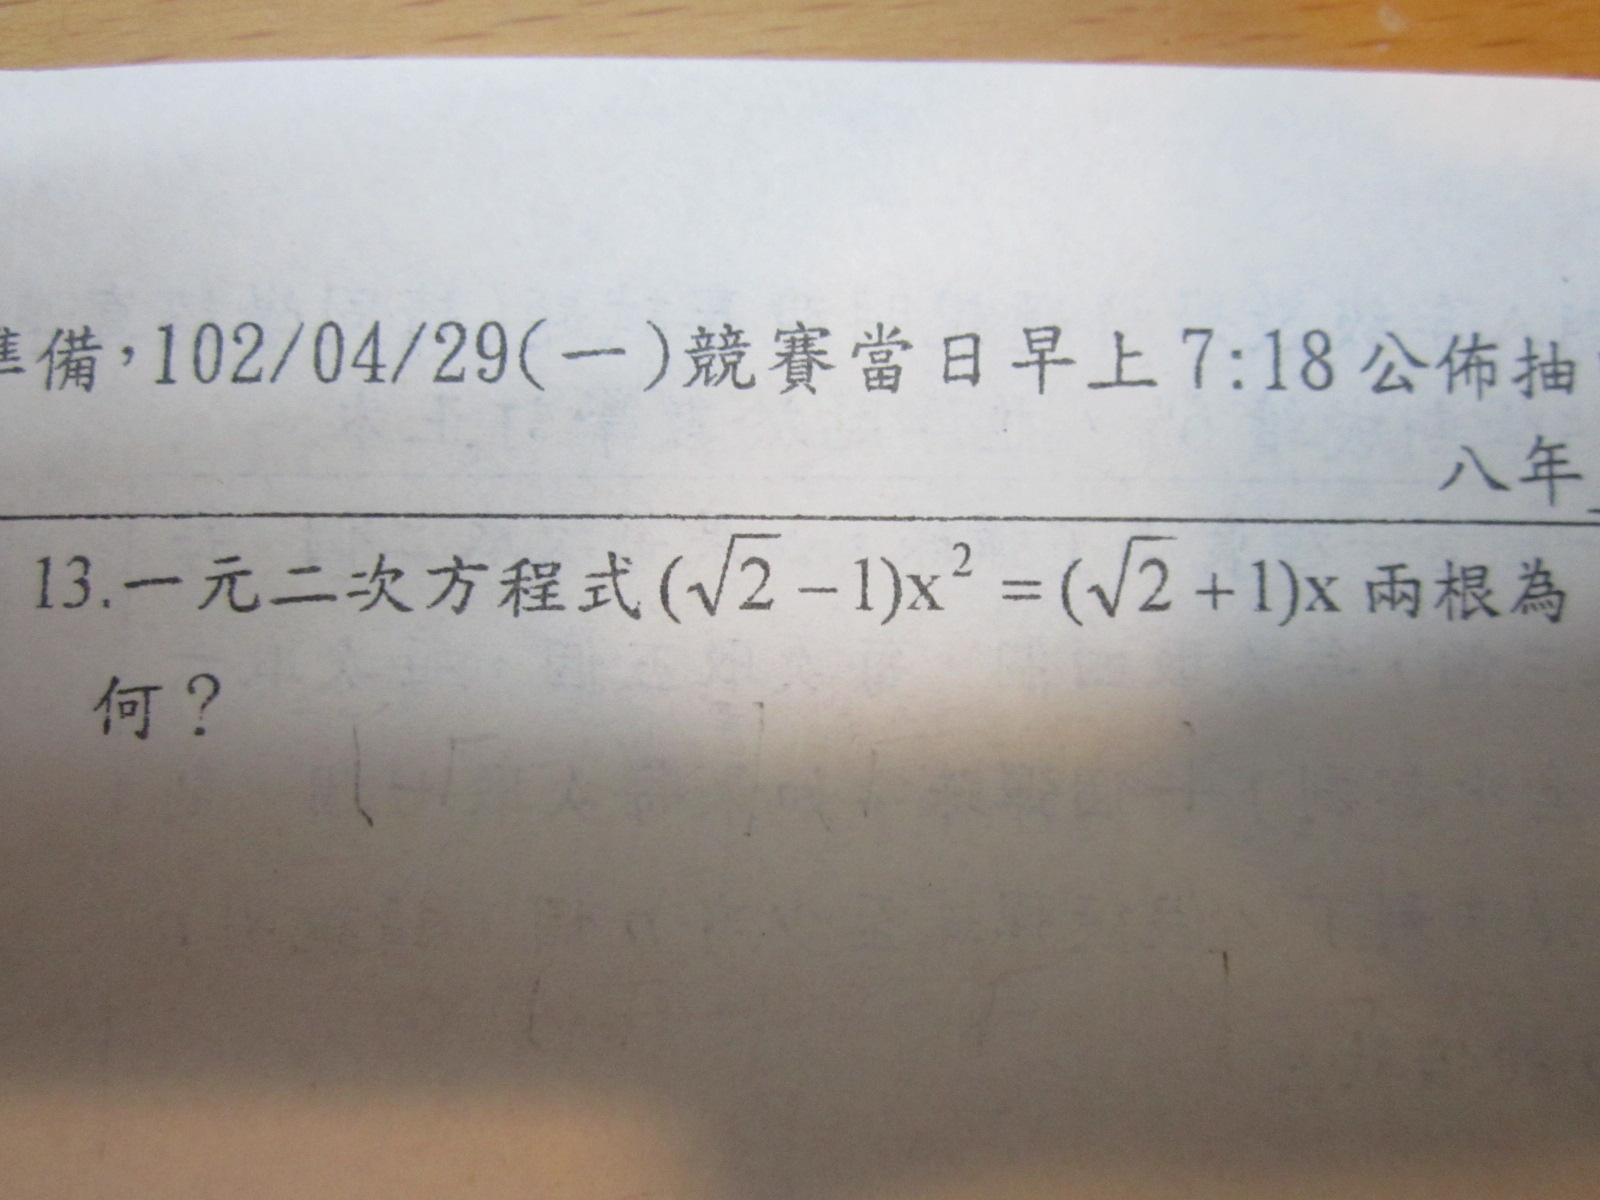 備，102/04/29(一)競賽當日早上 7:18 公佈抽
八年
13.一元二次方程式(√2－1)x² =(√2＋1)x 兩根為
何？